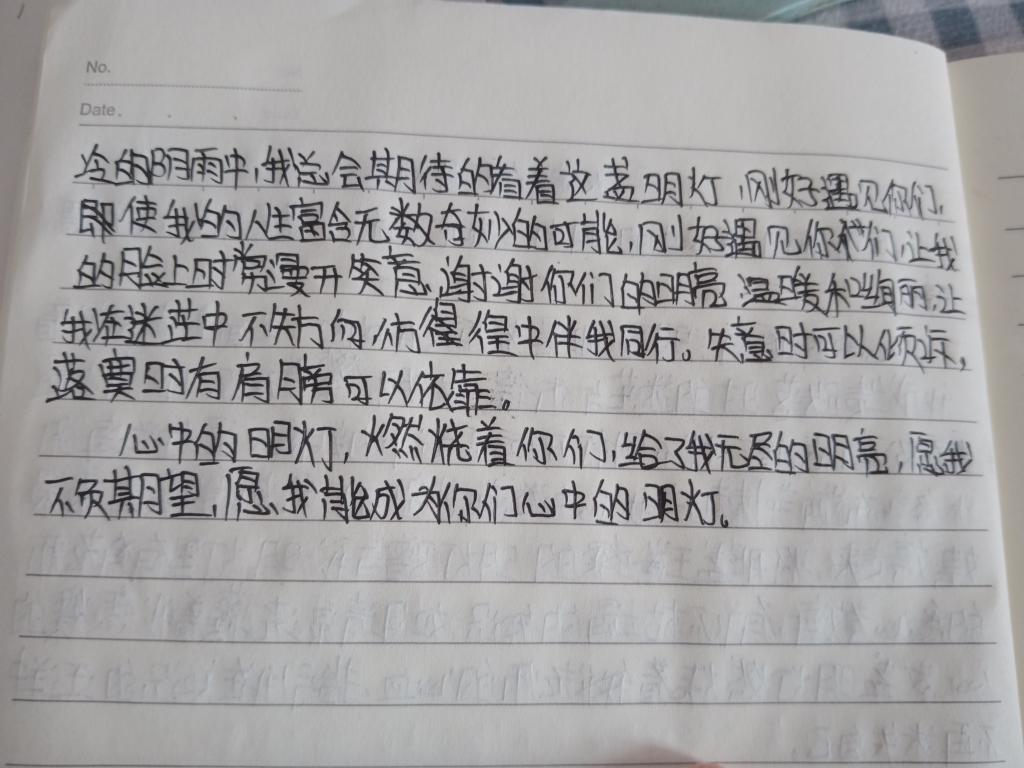 No.
Date.
冷的阴雨中,我总会期待的看着这盏明灯,刚好遇见你们,
即使我的人生富含无数奇妙的可能,刚好遇见你们,让我
的脸上时常漫开笑意,谢谢你们的明亮、温暖和绚丽,让
我在迷茫中不失方向,彷徨中伴我同行。失意时可以倾诉,
落寞时有肩膀可以依靠。
心中的明灯,燃烧着你们,给了我无尽的明亮,愿我
不负期望,愿我能成为你们心中的明灯。